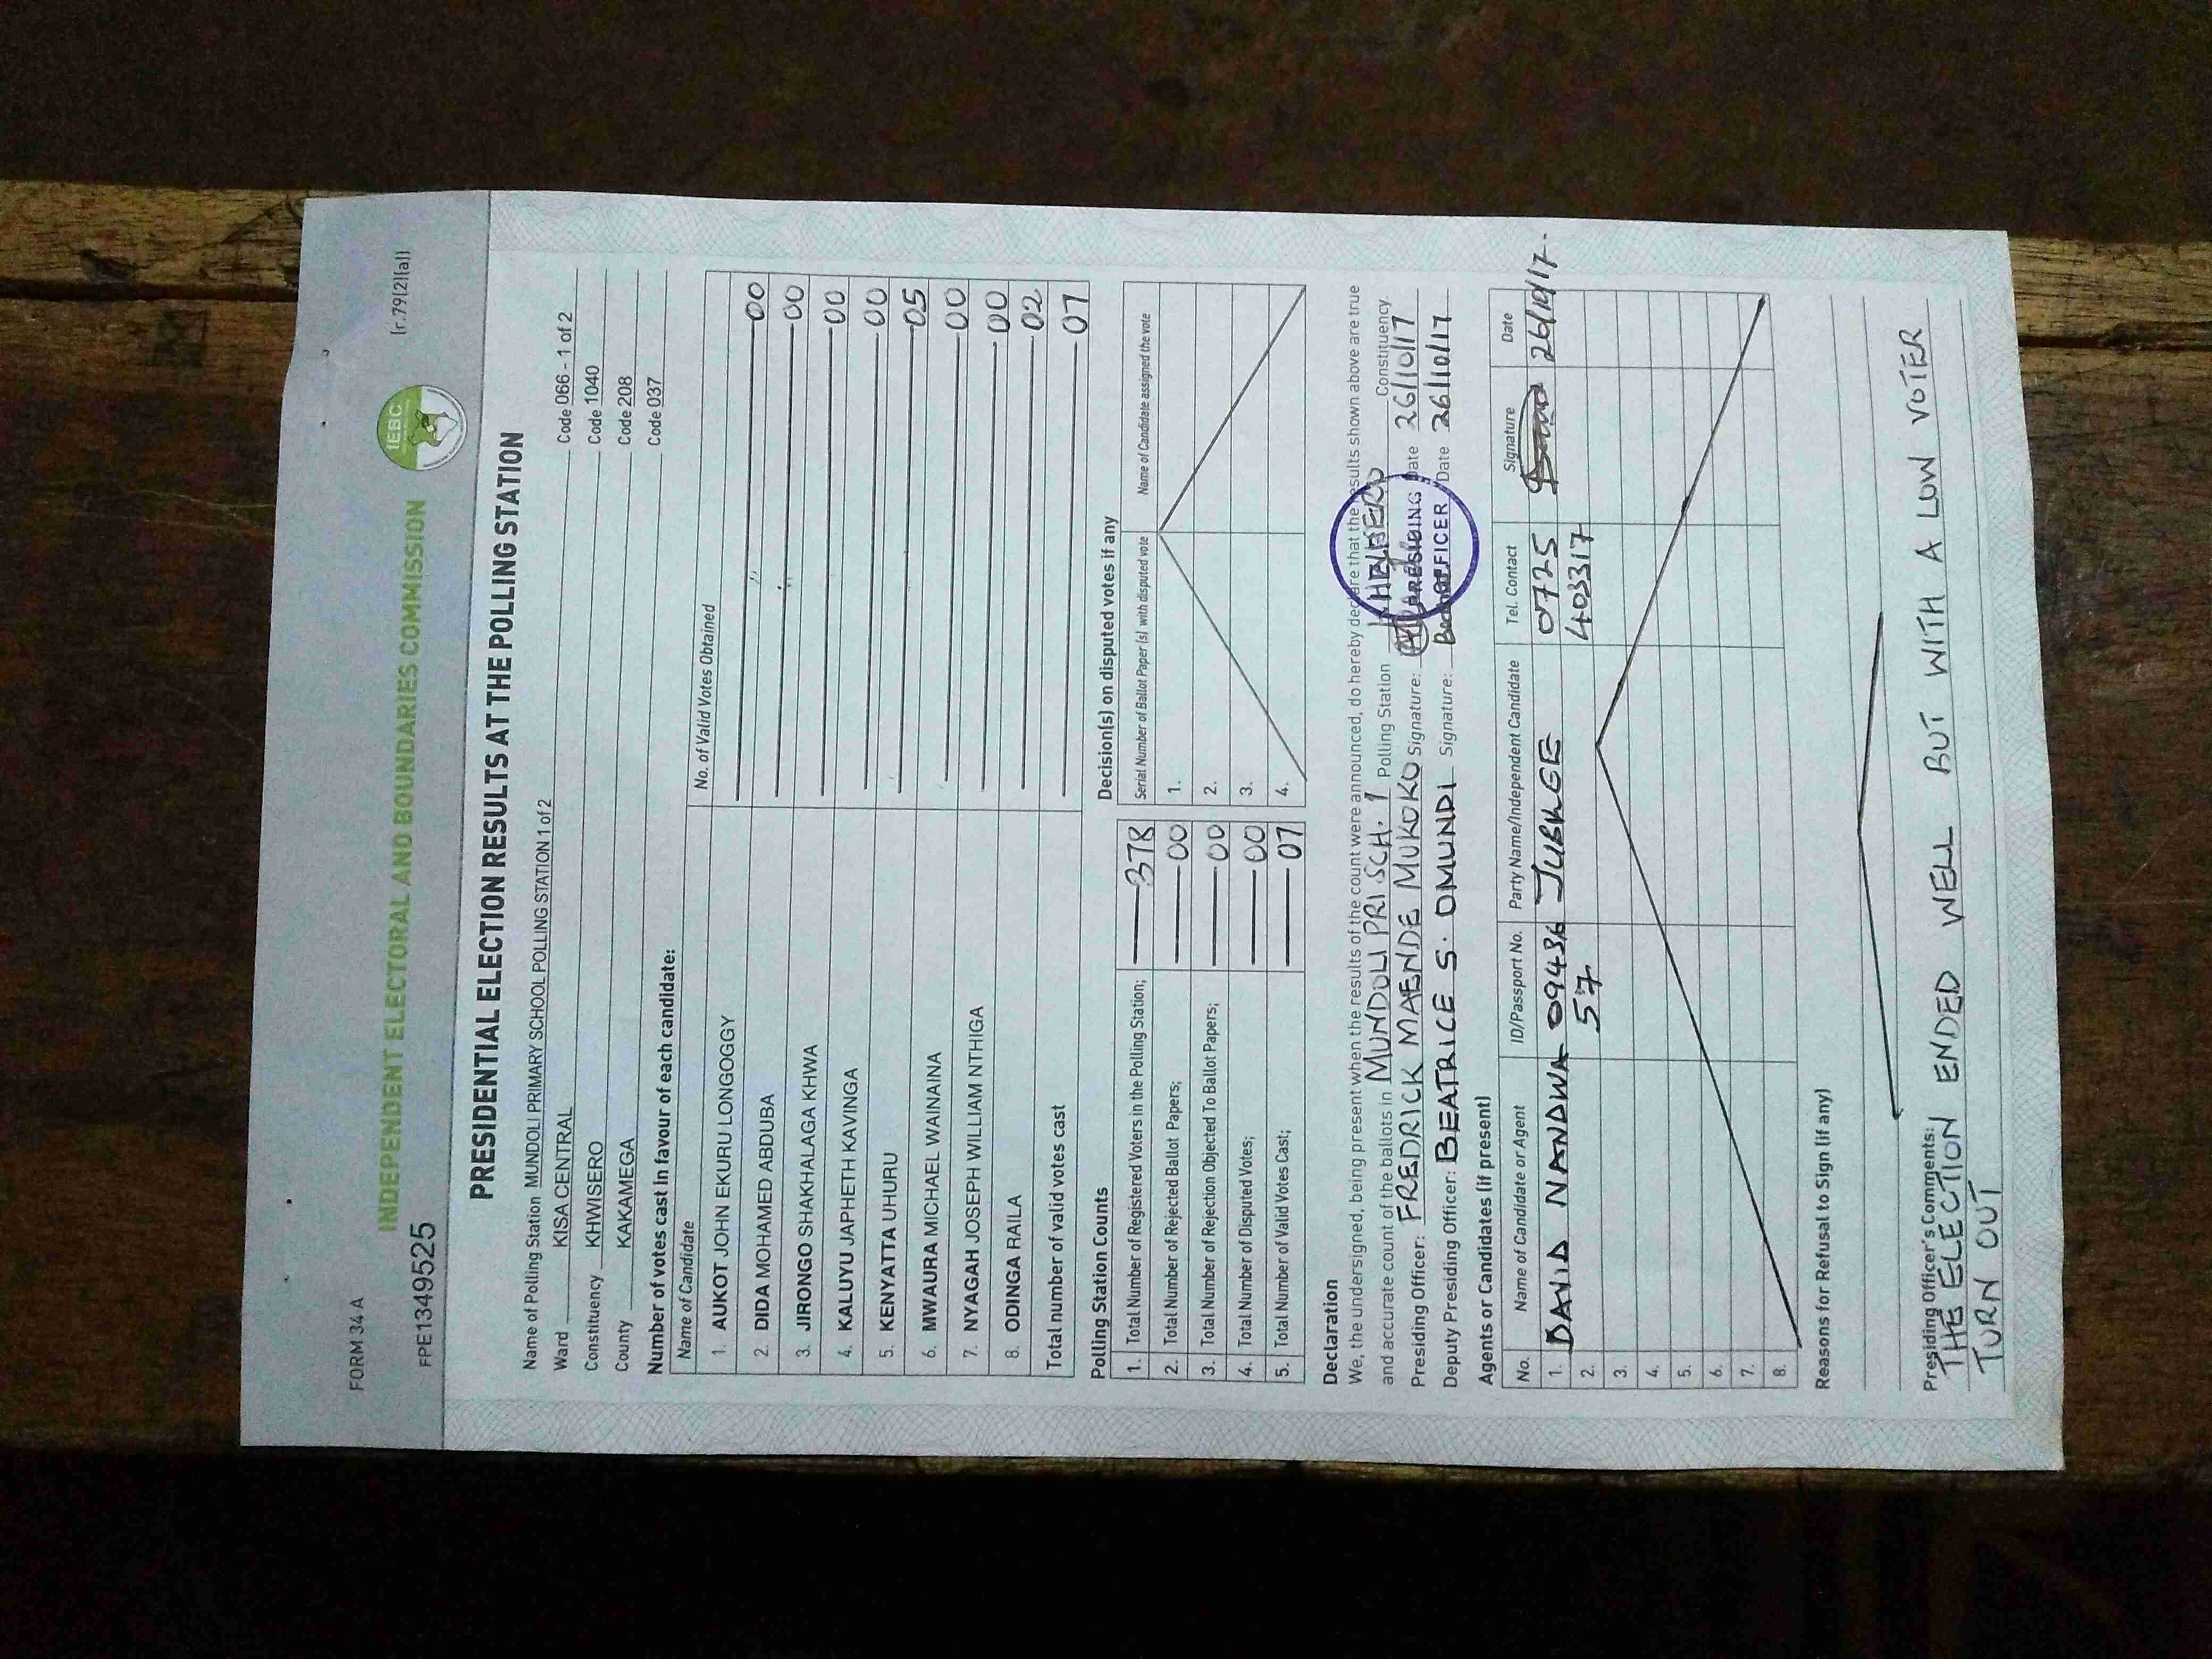 FORM 34 A
[r.79(2)(a)]
INDEPENDENT ELECTORAL AND BOUNDARIES COMMISSION
IEBC
FPE1349525
PRESIDENTIAL ELECTION RESULTS AT THE POLLING STATION
Name of Polling Station MUNDOLI PRIMARY SCHOOL POLLING STATION 1 of 2 Code 066 - 1 of 2
Ward KISA CENTRAL Code 1040
Constituency KHWISERO Code 208
County KAKAMEGA Code 037
Number of votes cast in favour of each candidate:
Name of Candidate No. of Valid Votes Obtained
1. AUKOT JOHN EKURU LONGOGGY 00
2. DIDA MOHAMED ABDUBA 00
3. JIRONGO SHAKHALAGA KHWA 00
4. KALUYU JAPHETH KAVINGA 00
5. KENYATTA UHURU 05
6. MWAURA MICHAEL WAINAINA 00
7. NYAGAH JOSEPH WILLIAM NTHIGA 00
8. ODINGA RAILA 02
Total number of valid votes cast 07
Polling Station Counts
1. Total Number of Registered Voters in the Polling Station; 378
2. Total Number of Rejected Ballot Papers; 00
3. Total Number of Rejection Objected To Ballot Papers; 00
4. Total Number of Disputed Votes; 00
5. Total Number of Valid Votes Cast; 07
Decision(s) on disputed votes if any
Serial Number of Ballot Paper (s) with disputed vote Name of Candidate assigned the vote
1.
2.
3.
4.
Declaration
We, the undersigned, being present when the results of the count were announced, do hereby declare that the results shown above are true
and accurate count of the ballots in MUNDOLI PRI SCH. 1 Polling Station KHWISERO Constituency.
Presiding Officer: FREDRICK MAENDE MUKOKO Signature: Date 26/10/17
Deputy Presiding Officer: BEATRICE S. OMUNDI Signature: Date 26/10/17
PRESIDING
OFFICER
Agents or Candidates (if present)
No. Name of Candidate or Agent ID/Passport No. Party Name/Independent Candidate Tel. Contact Signature Date
1. DAVID NANDWA 09436 JUBILEE 0725 26/10/17.
2. 57 403317
3.
4.
5.
6.
7.
8.
Reasons for Refusal to Sign (if any)
Presiding Officer's Comments:
THE ELECTION ENDED WELL BUT WITH A LOW VOTER
TURN OUT